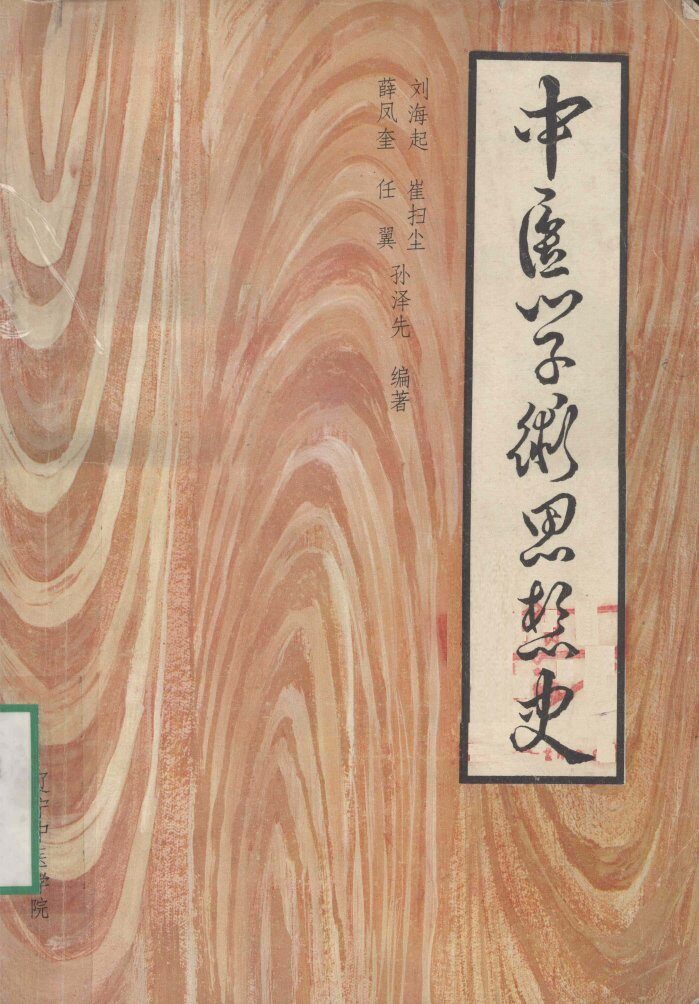 中医学術思想史
刘海起 崔扫尘
薛凤奎 任翼
孙泽先 编著
辽宁中医学院